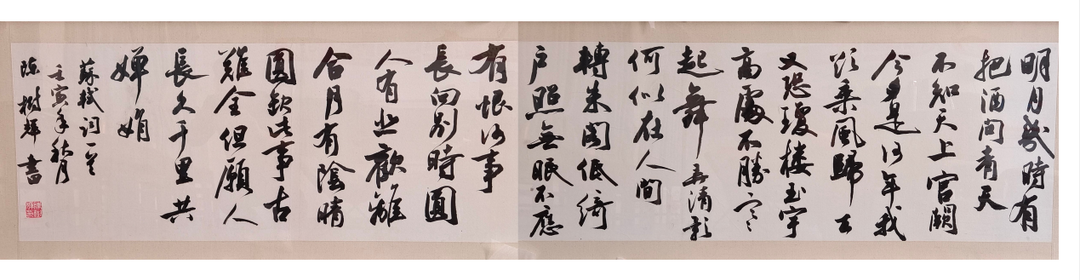 明月幾時有
把酒問青天
不知天上宮闕
今夕是何年我
欲乘風歸去
又恐瓊樓玉宇
高處不勝寒
起舞弄清影
何似在人間
轉朱閣低綺
戶照無眠不應
有恨何事
長向別時圓
人有悲歡離
合月有陰晴
圓缺此事古
難全但願人
長久千里共
嬋娟
蘇軾詞一首
壬寅年秋月
陳樹輝書